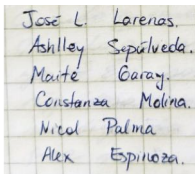 José L. Larenas.
Ashlley Sepúlveda.
Maite Garay.
Constanza Molina.
Nicol Palma
Alex Espinoza.